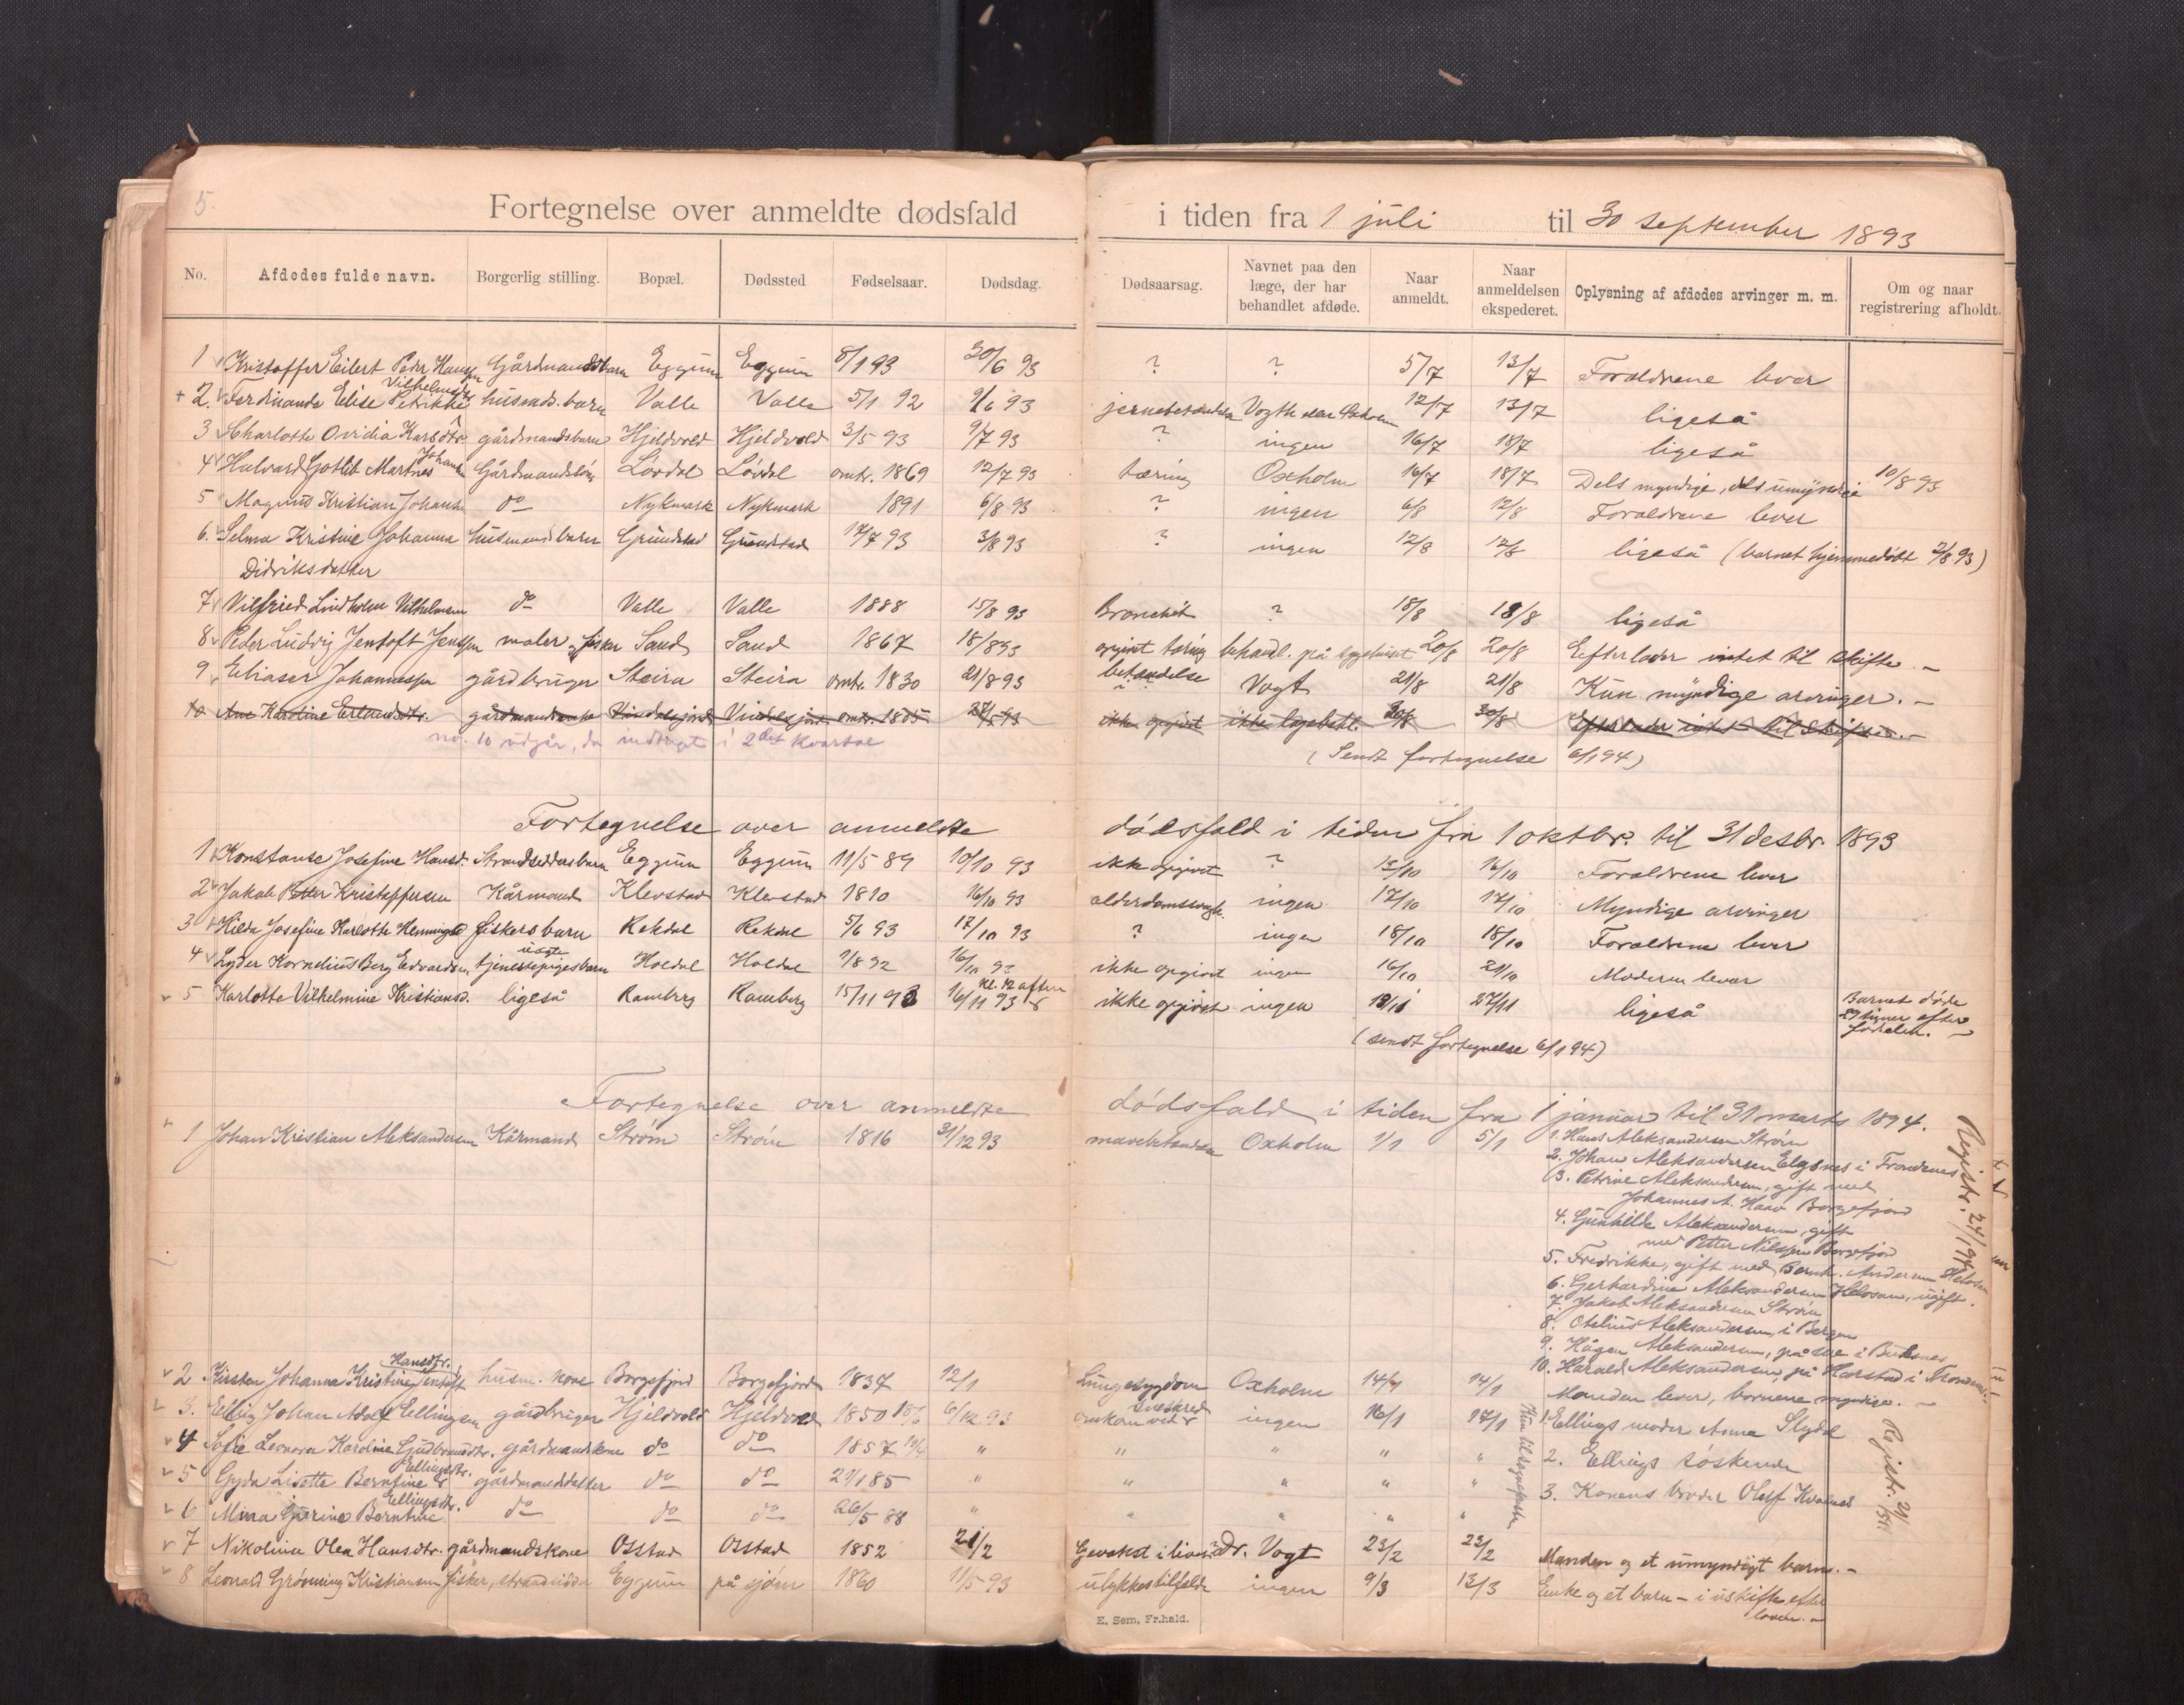 5.
Fortegnelse over anmeldte dødsfald i tiden fra 1 juli til 30 september 1893
No. Afdødes fulde navn. Borgerlig stilling. Bopæl. Dødssted Fødselsaar. Dødsdag. Dødsaarsag. Navnet paa den læge, der har behandlet afdøde. Naar anmeldt. Naar anmeldelsen ekspederet. Oplysning af afdødes arvinger m. m. Om og naar registrering afholdt.
1 Kristoffer Eilert Peder Hansen Gårdmandsbarn Eggum Eggum 8/1 93 30/6 93 ? ? 5/7 13/7 Forældrene lever
Vilhelmsdtr
2. Ferdinanda Elise Petrikke husmds. barn Valle Valle 5/1 92 9/6 93 Vogth 12/7 13/7 ligeså
3 Charlotte Ovidia Karsdtr. gårdmandsbarn Hjeldvold Hjeldvold 3/5 93 9/7 93 ? ingen 16/7 18/7 ligeså
Johansen
4 Halvard Gotlib Martnes Gårdmandssøn Løvdal Løvdal omtr. 1869 12/7 93 tæring Oxholm 16/7 18/7 Dels myndige, dels umyndige 10/8 93
5 Magnus Kristian Johansen do Nykmark Nykmark 1891 6/8 93 ? ingen 6/8 12/8 Forældrene lever
6. Selma Kristine Johanna husmandsbarn Grundstad Grundstad 17/7 93 3/8 93 ? ingen 12/8 12/8 ligeså (barnet hjemmedøbt 2/8 93)
Didriksdatter
7 Vilfried Lindholm Vilhelmsen do Valle Valle 1888 15/8 93 Bronchit ? 18/8 18/8 ligeså
8 Peder Ludvig Jentoft Jenssen maler og fisker Sand Sand 1867 18/8 93 opgivet tæring behandl. på sygehuset 20/8 20/8 Efterlader intet til skifte. –
9 Eliaser Johannessen gårdbruger Steira Steira omtr. 1830 21/8 93 betændelse Vogt 21/8 21/8 Kun myndige arvinger. –
10 Ane Karoline Erlandsdtr. gårdmandsenke Vindalsjord Vindalsjord omtr. 1805 ikke opgivet ikke lægebeh. 30/8 30/8 Efterlader intet til skifte. –
no. 10 udgår, da indtagt i 2det kvartal
(Sendt fortegnelse 6/1 94)
Fortegnelse over anmeldte dødsfald i tiden fra 1 oktbr. til 31 desbr. 1893
1 Konstanse Josefine Hansd. Strandsidderbarn Eggum Eggum 11/5 89 10/10 93 ikke opgivet ? 15/10 16/10 Forældrene lever
2 Jakob Petter Kristoffersen Kårmand Klevstad Klevstad 1810 16/10 93 alderdomssvagh. ingen 17/10 17/10 Myndige arvinger
3 Hilda Josefine Karlotte Hemmingsd fiskers barn Rekdal Rekdal 5/6 93 17/10 93 ? ingen 18/10 18/10 Forældrene lever
uægte
4 Lyder Kornelius Berg Edvardsen, tjenestepigesbarn Holdal Holdal 1/8 92 16/10 93 ikke opgivet ingen 16/10 21/10 Moderen lever
kl. 12 aften
5 Karlotte Vilhelmine Kristiansd. ligeså Ramberg Ramberg 15/11 93 16/11 93 ikke opgivet ingen 18/11 27/11 ligeså Barnet døde
timer efter
fødselen. –
(sendt fortegnelse 6/1 94)
Fortegnelse over anmeldte dødsfald i tiden fra 1 januar til 31 marts 1894.
1 Johan Kristian Aleksandersen Kårmand Strøm Strøm 1816 31/12 93 Oxholm 1/1 5/1 1. Hans Aleksandersen Strøm
2. Johan Aleksandersen Elgsnes i Trondenes
3. Petrine Aleksandersen, gift med
Johannes A. Borgefjord
4. Gunhilda Aleksandersen, gift
med Petter Nilssen Borgefjord
5. Fredrikke, gift med Bernh. Andersen Helosan
6. Gerhardine Aleksandersen Helosan, ugift.
7. Jakob Aleksandersen Strøm
8. Otelius Aleksandersen, i Bergen
9. Hågen Aleksandersen, i Buksnes
10. Harald Aleksandersen på Harstad i Trondenes
Registr. 24/1 94
Hansdtr.
2 Kirsten Johanna Kristine Jentoft husm. kone Borgefjord Borgefjord 1837 12/1 Lungesygdom Oxholm 14/1 14/1 Manden lever, børnene myndige. –
3. Elling Johan Adolf Ellingsen gårdbruger Hjeldvold Hjeldvold 1850 6/12 93 omkom ved sneskred ingen 16/1 17/1 1. Ellings moder Anna Slydal
4 Sofie Leonora Karoline Gudbrandsdtr. gårdmandskone do do 1857 " " " " " 2. Ellings søskende
Ellingsdtr.
5 Gyda Lisette Berntine gårdmandsdatter do do 21/1 85 " " " " " 3. Konens broder Oluf Kvalnes
Ellingsdtr.
6 Mina Gurine Berntine do do do 26/5 88 " " " " "
Registr.
7 Nikoline Olea Hansdtr. gårdmandskone Osstad Osstad 1852 21/2 dr. Vogt 23/2 23/2 Manden og et umyndigt barn. –
8 Leonard Grønning Kristiansen fisker, strandsidder Eggum på sjøen 1860 ulykkestilfælde ingen 9/3 13/3 Enke og et barn – i uskifte efter
loven. –
E. Sem, Fr.hald.